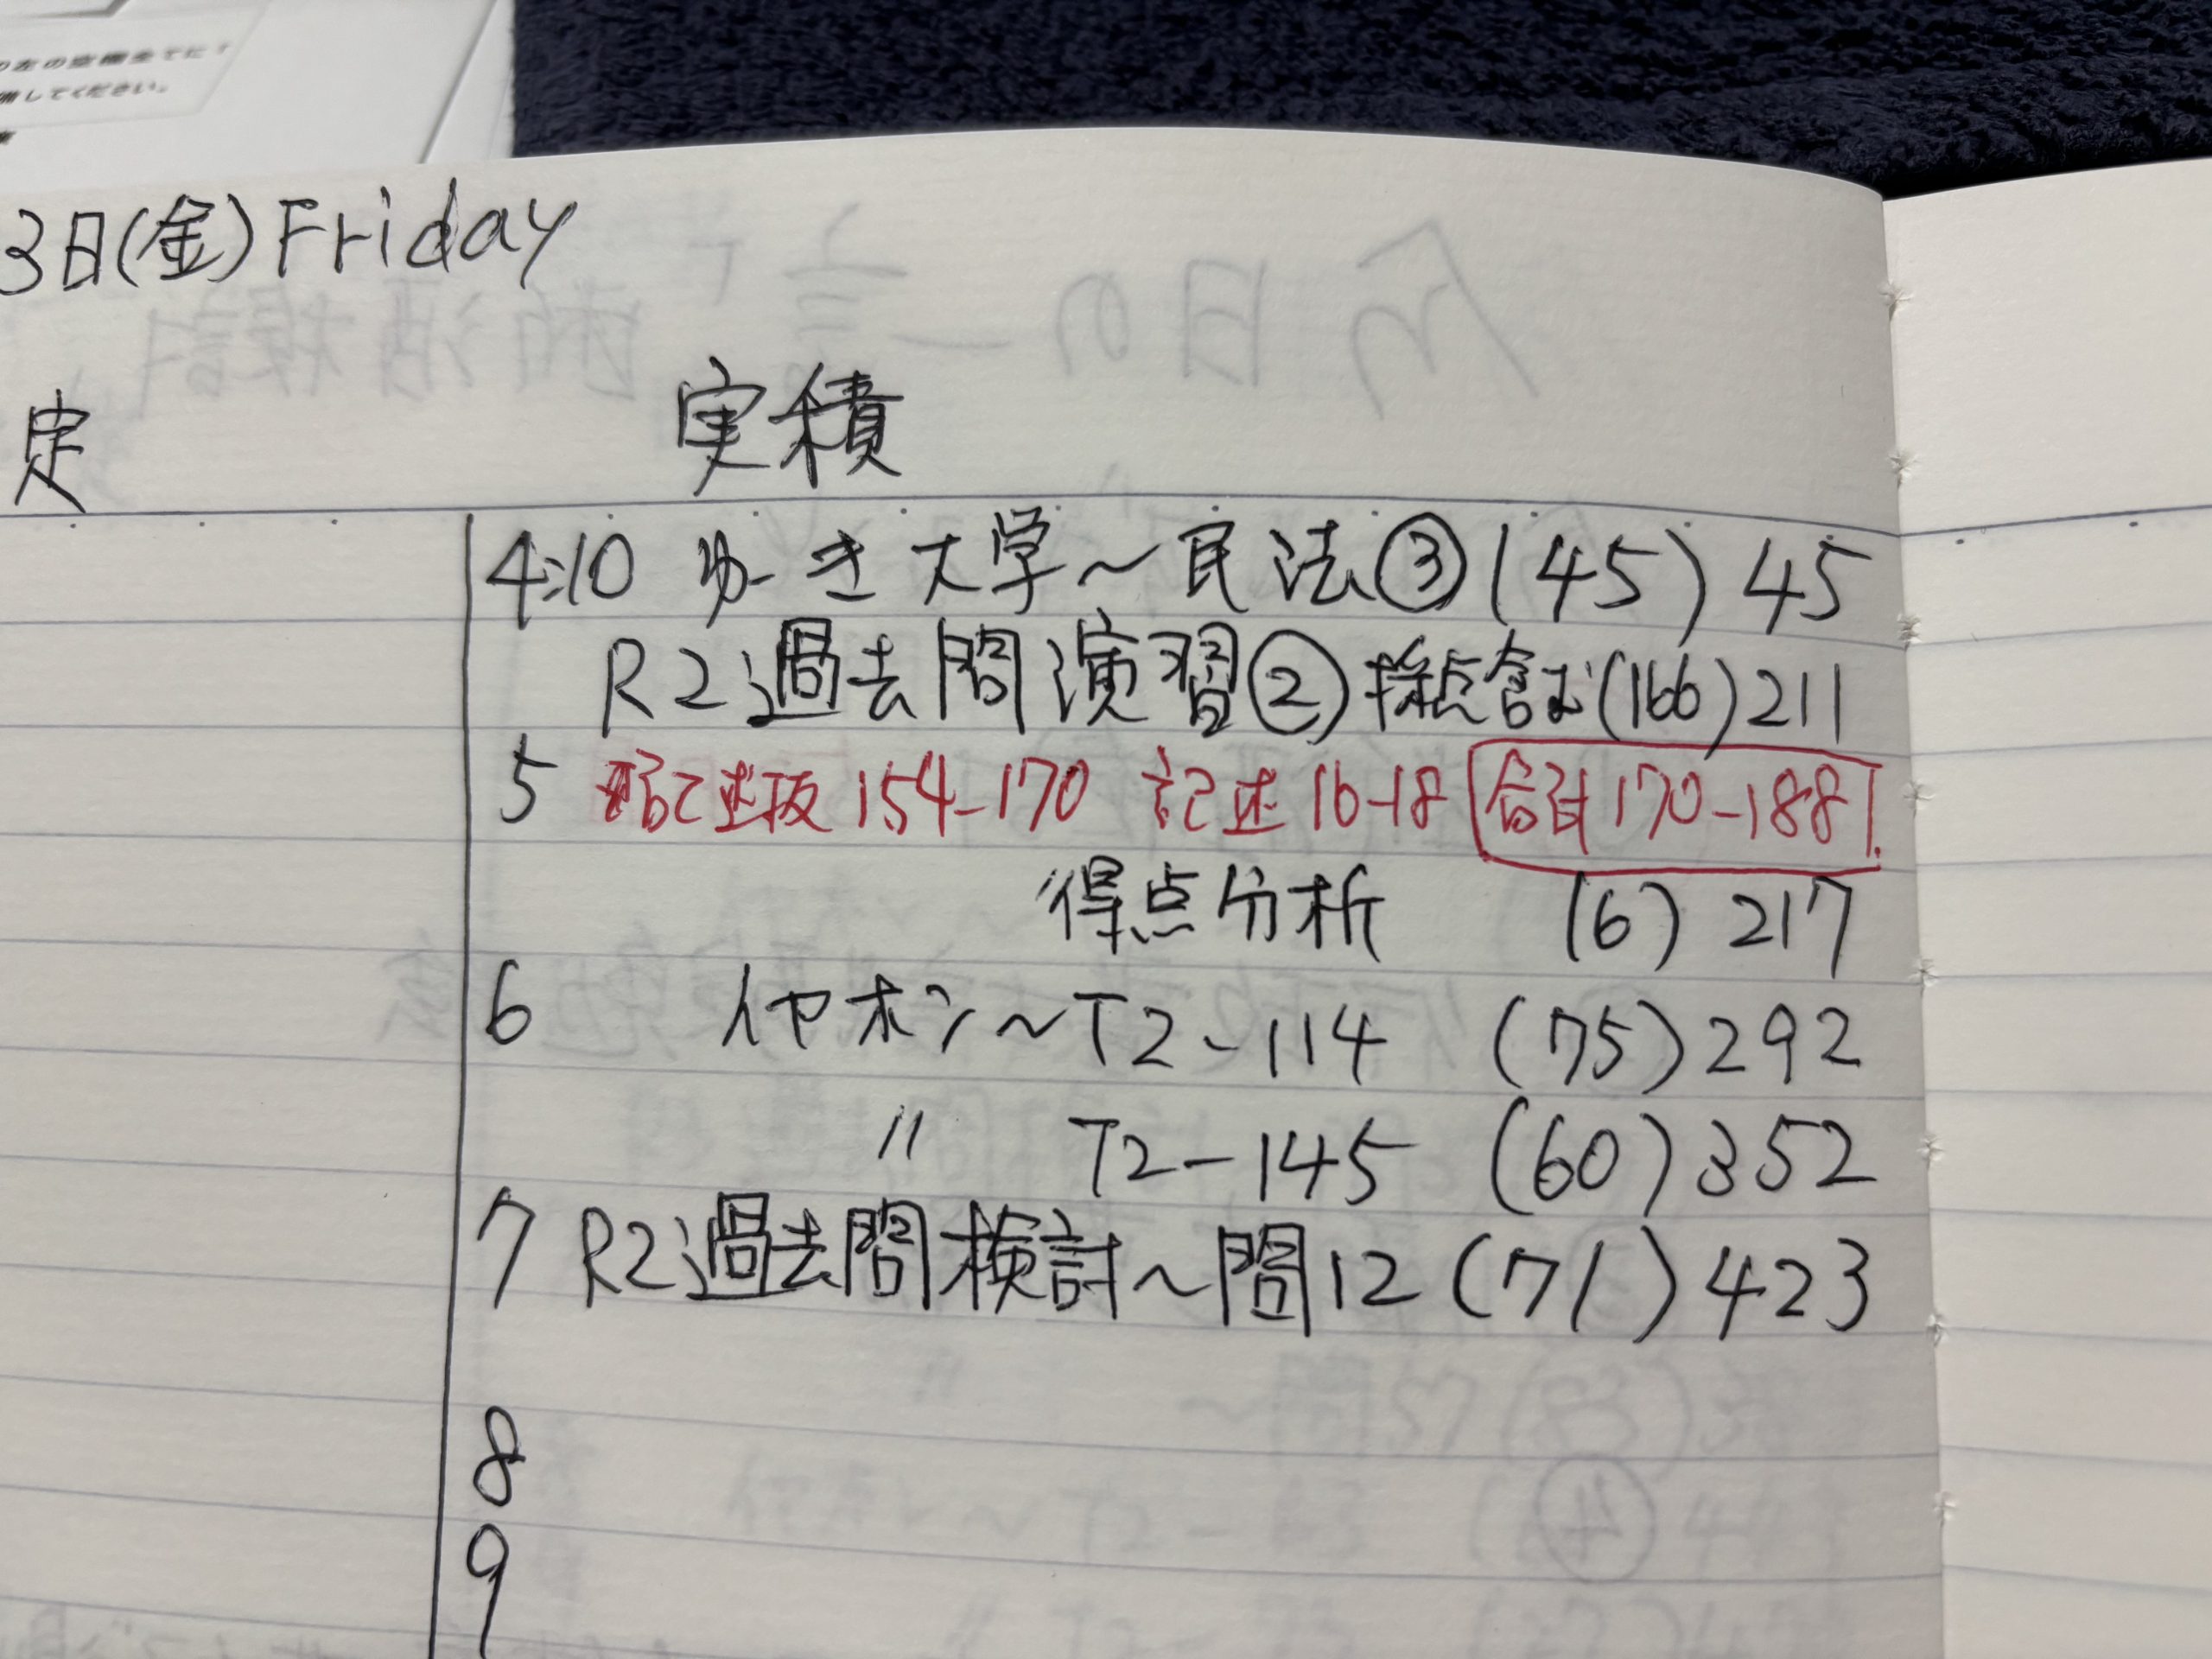 の左の空欄全てに
備してください。
3日(金)Friday
定 実積
4:10 ゆーき大学〜民法③(45) 45
R2過去問演習②採点含む(166)211
5 記述抜154-170 記述16-18 合計170-188
得点分析 (6) 217
6 イヤホン〜T2-114 (75)292
〃 T2-145 (60)352
7 R2過去問検討〜問12(71)423
8
9